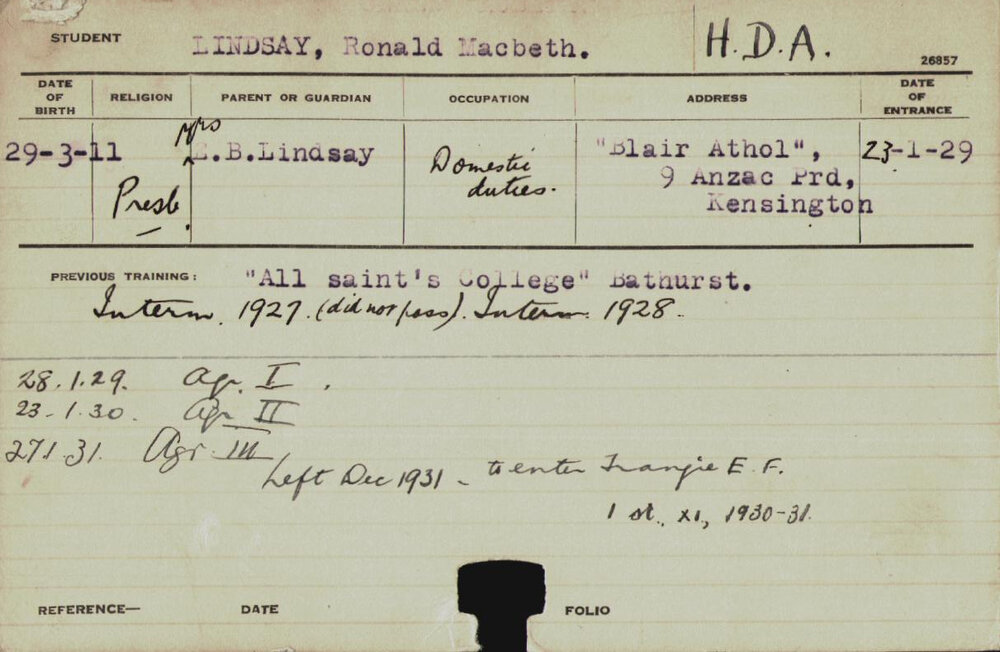 STUDENT LINDSAY, Ronald Macbeth. H.D.A. 26857
DATE OF BIRTH RELIGION PARENT OR GUARDIAN OCCUPATION ADDRESS DATE OF ENTRANCE
29-3-11 Presb. Mrs E.B.Lindsay Domestic duties. "Blair Athol", 23-1-29
9 Anzac Prd,
Kensington
PREVIOUS TRAINING: "All saint's College" Bathurst.
Interm. 1927. (did not pass). Interm. 1928.
28.1.29. Agr. I.
23-1.30. Agr II
271.31. Agr. III
Left Dec 1931 - to enter Trangie E.F.
1 st. XI, 1930-31.
REFERENCE— DATE FOLIO